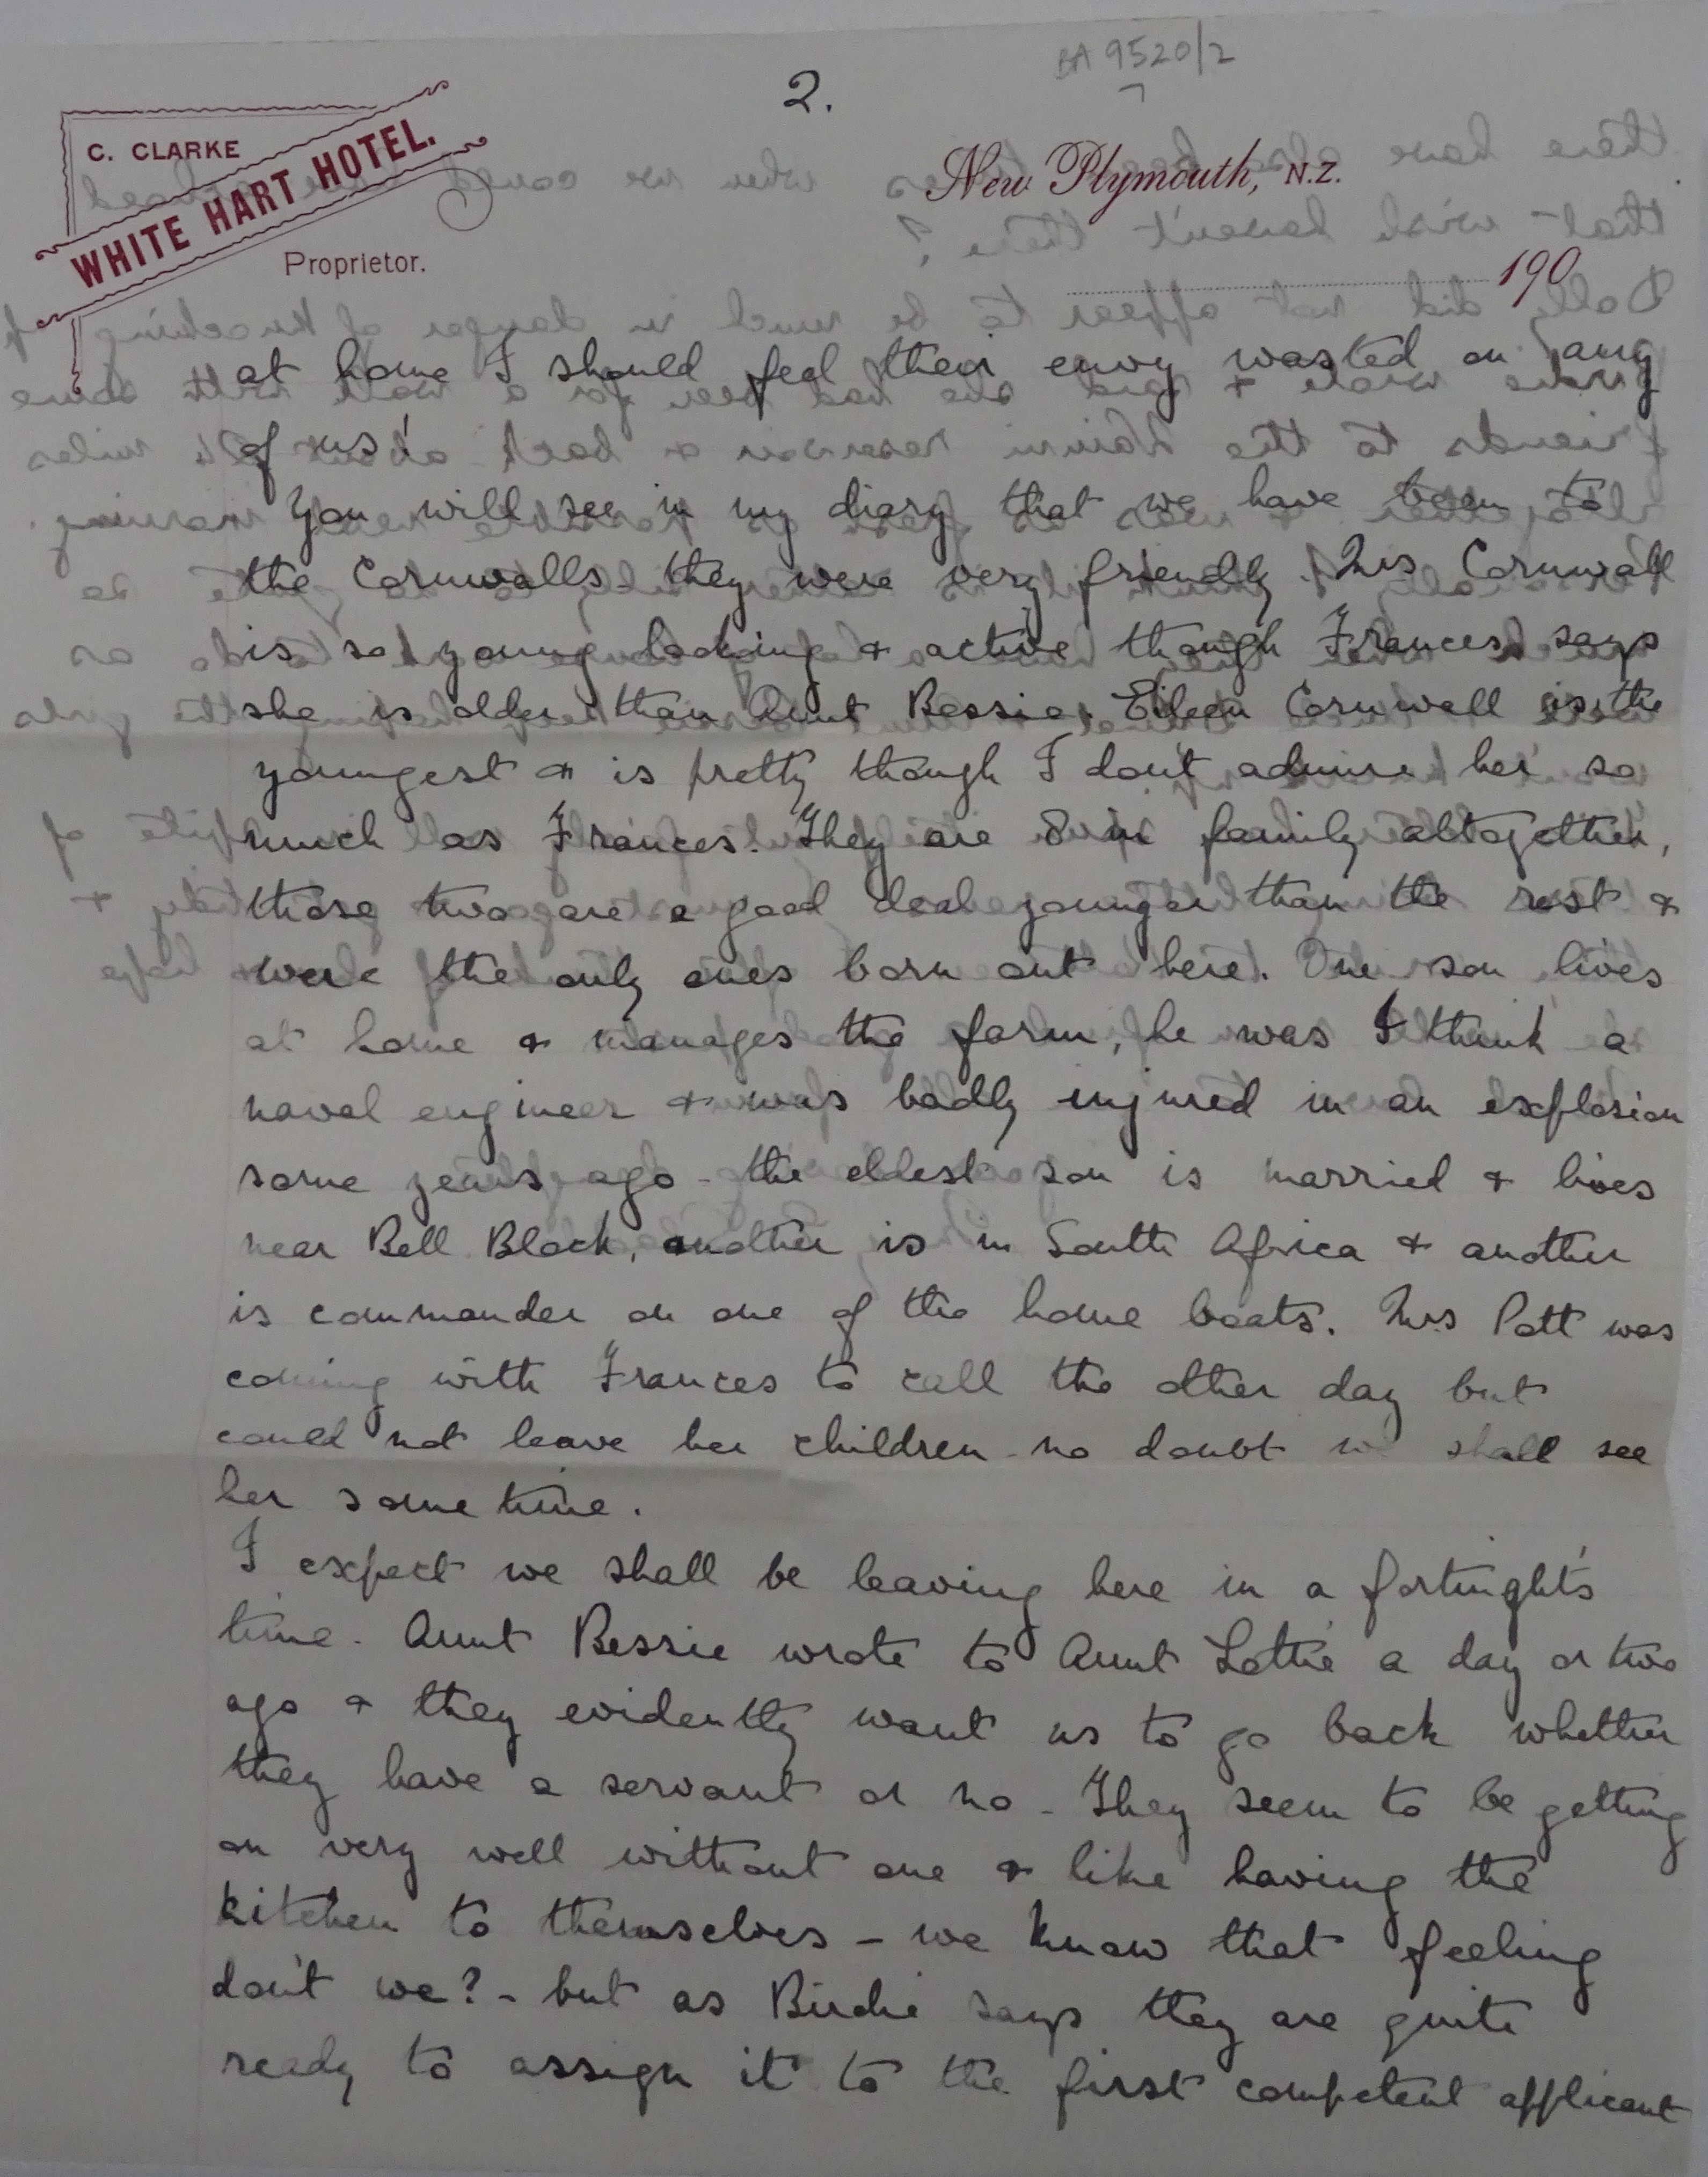 BA 9520/2
2.
C. CLARKE
WHITE HART HOTEL.
Proprietor.
New Plymouth, N.Z.
190
at home I should feel their envy wasted on any
of us!
You will see in my diary that we have been to
the Cornwalls they were very friendly. Mrs Cornwall
is so young looking & active though Frances says
she is older than Aunt Bessie. Eileen Cornwall is the
youngest & is pretty though I don't admire her so
much as Frances. They are 8 in family altogether,
those two are a good deal younger than the rest &
were the only ones born out here. One son lives
at home & manages the farm, he was I think a
naval engineer & was badly injured in an explosion
some years ago - the eldest son is married & lives
near Bell Block, another is in South Africa & another
is commander on one of the home boats. Mrs Pott was
coming with Frances to call the other day but
could not leave her children - no doubt we shall see
her some time.
I expect we shall be leaving here in a fortnight's
time. Aunt Bessie wrote to Aunt Lottie a day or two
ago & they evidently want us to go back whether
they have a servant or no - They seem to be getting
on very well without one & like having the
kitchen to themselves - we know that feeling
don't we? - but as Birdie says they are quite
ready to assign it to the first competent applicant